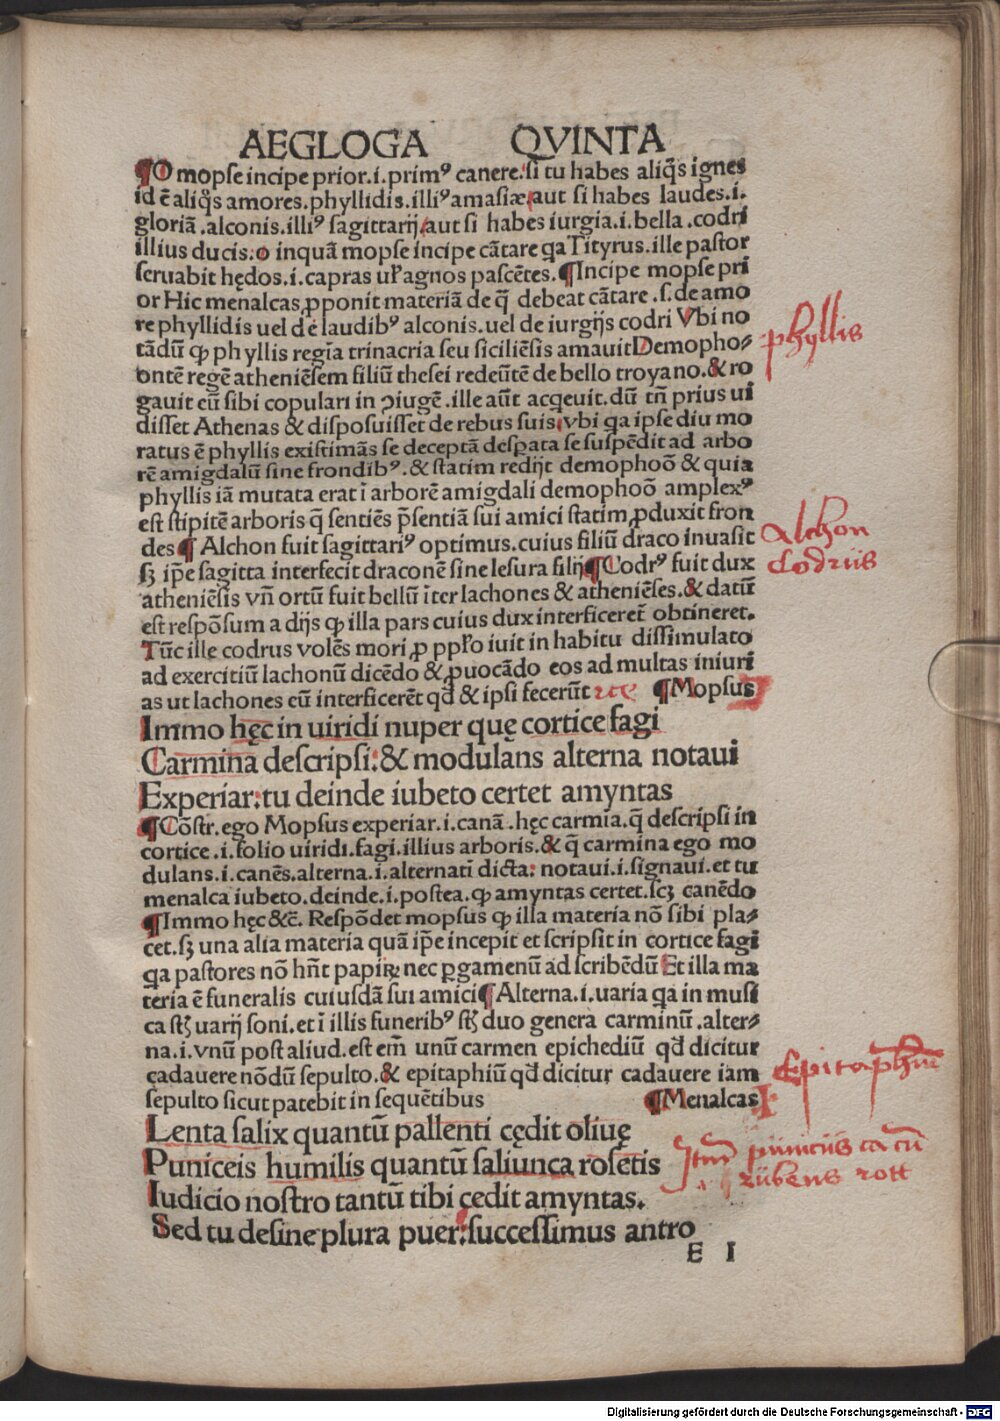 AEGLOGA QVINTA
¶O mopse incipe prior.i.primꝰ canere.si tu habes aliq̄s ignes
id ē aliq̄s amores.phyllidis.illiꝰ amasiæ,aut si habes laudes.i.
gloriā.alconis.illiꝰ sagittarij,aut si habes iurgia.i.bella.codri
illius ducis:o inquā mopse incipe cātare qa Tityrus.ille pastor
seruabit hędos.i.capras ul̉ agnos pascētes.¶Incipe mopse pri
or Hic menalcas ꝓponit materiā de q̄ debeat cātare.s.de amo
re phyllidis uel de laudibꝰ alconis.uel de iurgijs codri Vbi no
tādū ꝙ phyllis regia trinacria seu siciliēsis amauit Demopho⸗
ontē regē atheniēsem filiū thesei redeūtē de bello troyano.& ro
gauit eū sibi copulari in ꝯiugē.ille aūt acqeuit.dū tn̄ prius ui
disset Athenas & disposuisset de rebus suis,vbi qa ipse diu mo
ratus ē phyllis existimās se deceptā desꝑata se suspēdit ad arbo
rē amigdalū sine frondibꝰ.& statim redijt demophoō & quia
phyllis iā mutata erat ī arborē amigdali demophoō amplexꝰ
est stipitē arboris q̄ sentiēs p̄sentiā sui amici statim ꝓduxit fron
des ¶ Alchon fuit sagittariꝰ optimus.cuius filiū draco inuasit
sꝫ ip̄e sagitta interfecit draconē sine lesura filij ¶Codrꝰ fuit dux
atheniēsis vn̄ ortū fuit bellū īter lachones & atheniēses.& datū
est respōsum a dijs ꝙ illa pars cuius dux interficeret̄ obtineret.
Tūc ille codrus volēs mori ꝓ ppl̉o iuit in habitu dissimulato
ad exercitiū lachonū dicēdo & ꝓuocādo eos ad multas iniuri
as ut lachones eū interficerēt qd̄ & ipsi fecerūt ⁊cꝫ ¶Mopsus
Immo hęc in uiridi nuper quę cortice fagi
Carmina descripsi:& modulans alterna notaui
Experiar:tu deinde iubeto certet amyntas
¶Cōstr.ego Mopsus experiar.i.canā.hęc carmia.q̄ descripsi in
cortice.i.folio uiridi.fagi.illius arboris.& q̄ carmina ego mo
dulans.i.canēs.alterna.i.alternati dicta: notaui.i.signaui.et tu
menalca iubeto.deinde.i.postea.ꝙ amyntas certet.scꝫ canēdo
¶Immo hęc &c̄. Respōdet mopsus ꝙ illa materia nō sibi pla⸗
cet.sꝫ una alia materia quā ip̄e incepit et scripsit in cortice fagi
qa pastores nō hn̄t papiꝝ nec ꝑgamenū ad scribēdū Et illa ma
teria ē funeralis cuiusdā sui amici ¶Alterna.i.uaria qa in musi
ca stꝫ uarij soni.et ī illis funeribꝰ stꝫ duo genera carminū.alter⸗
na.i.vnū post aliud.est em̄ unū carmen epichediū qd̄ dicitur
cadauere nōdū sepulto.& epitaphiū qd̄ dicitur cadauere iam
sepulto sicut patebit in sequētibus ¶Menalcas
Lenta salix quantū pallenti cędit oliuę
Puniceis humilis quantū saliunca rosetis
Iudicio nostro tantū tibi cędit amyntas.
Sed tu desine plura puer:successimus antro
E I
phyllis
Alchon
Codrus
Epitaphiū
rubens rott
Digitalisierung gefördert durch die Deutsche Forschungsgemeinschaft - DFG